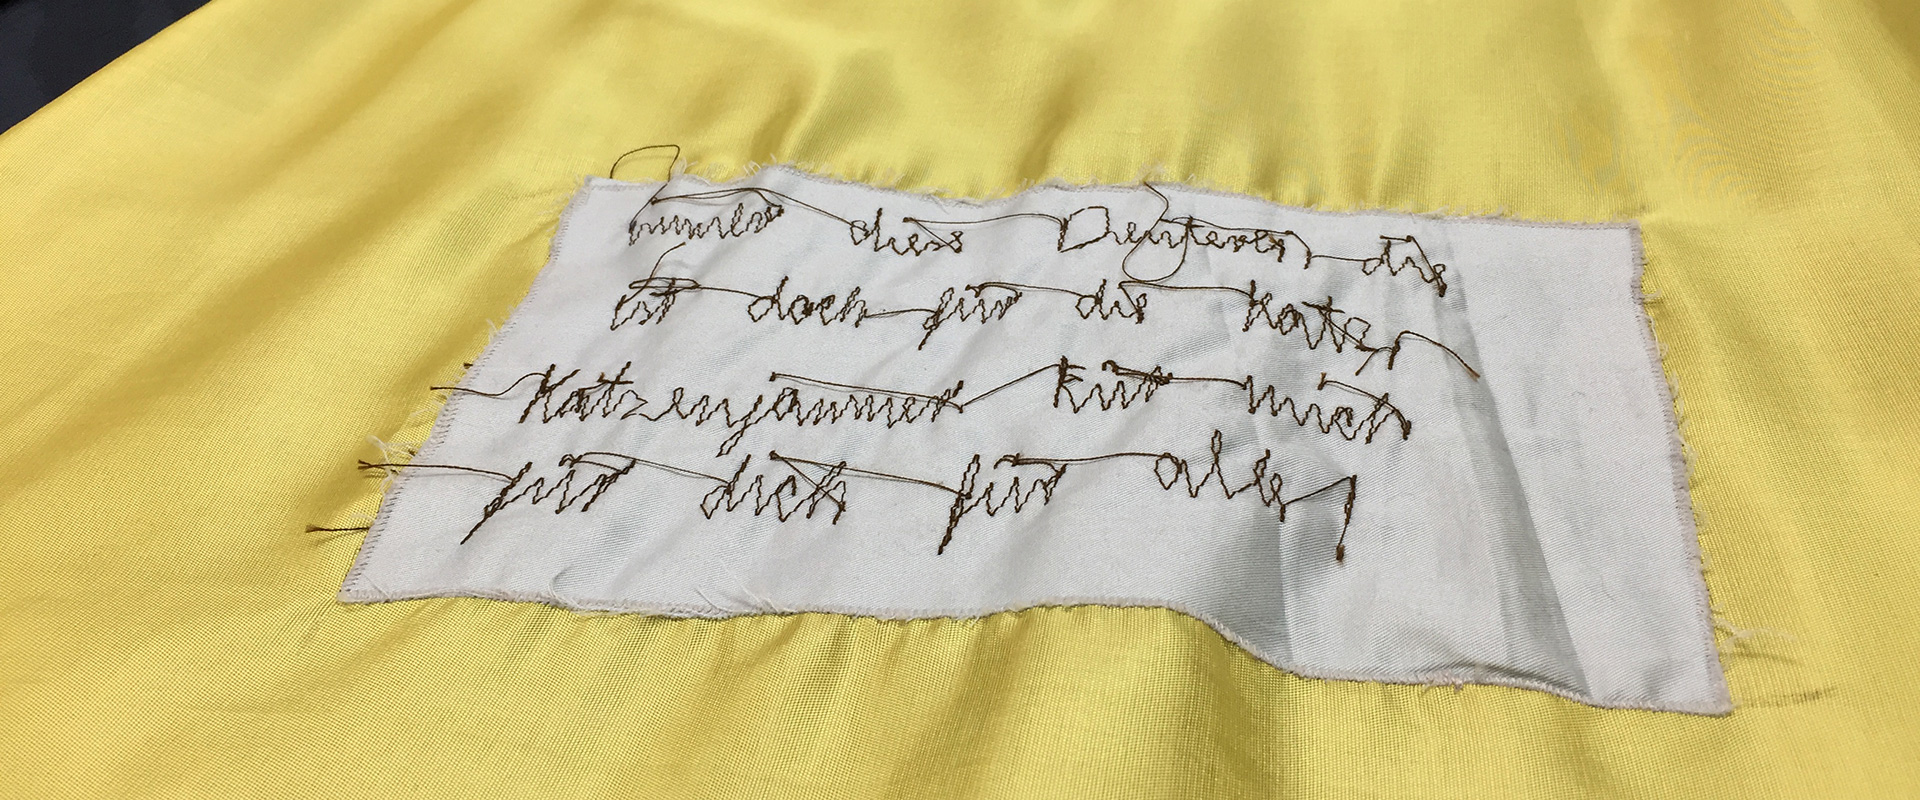 immer dies Deuteln, das
ist doch für die Katze,
Katzenjammer für mich
für dich für alle,